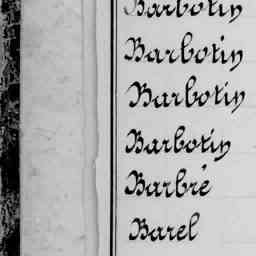 Barbotin
Barbotin
Barbotin
Barbotin
Barbré
Barel